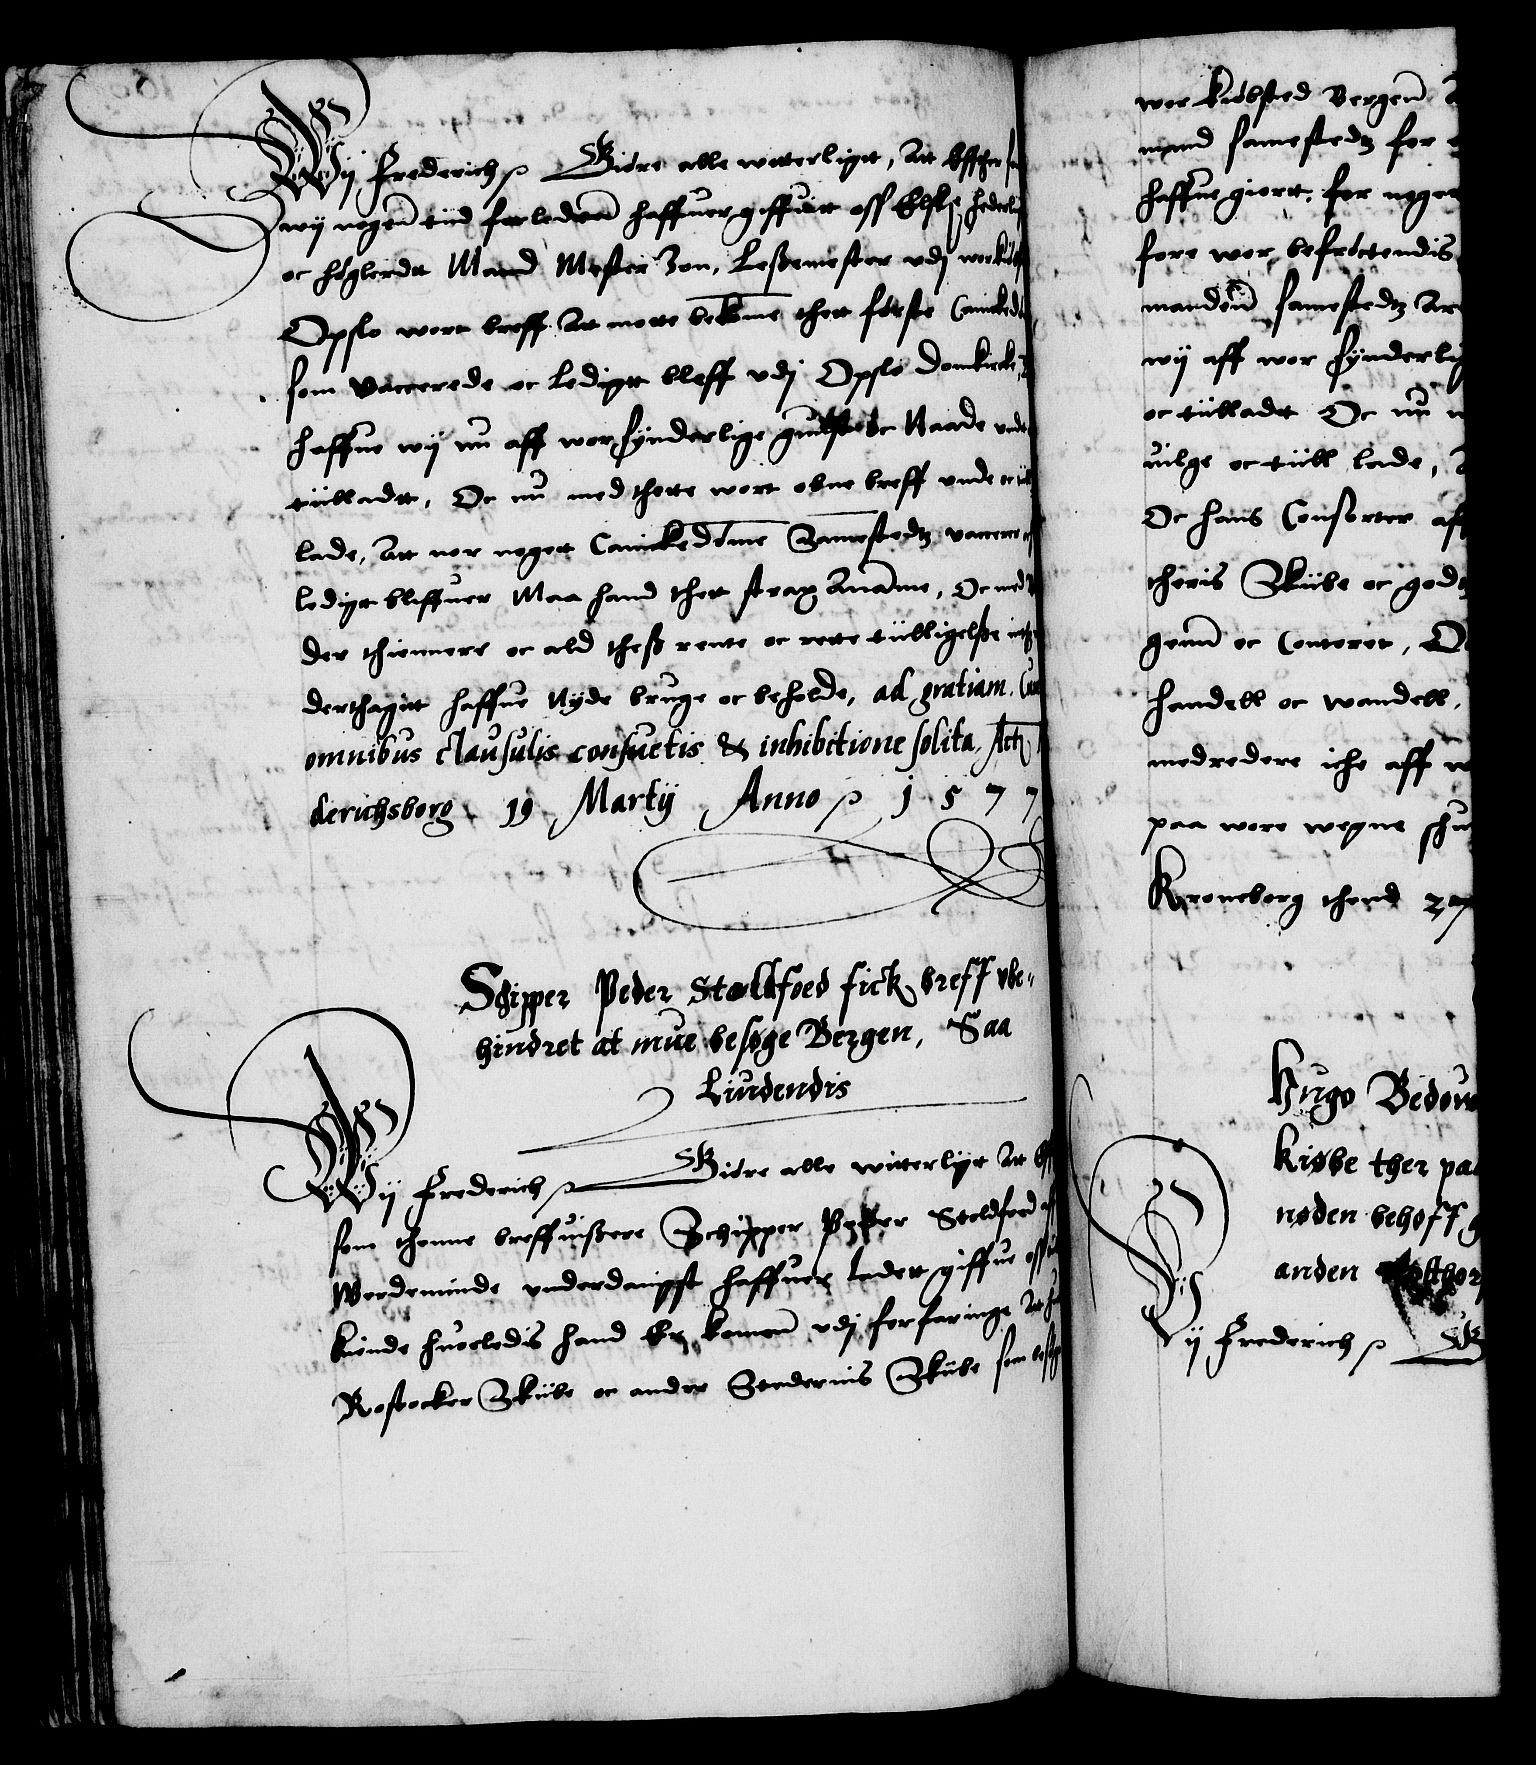 Wij Frederich p Giøre alle witterligtt, Att Effther
wij nogen tiid forledenn haffuer giffuitt oss Elske hederlig
oc høglerdtt Mand Mester Jon, Leßemester vdj wor
Opslo wort breff Att motte bekome thett første Canickedom
som vaccerede oc ledigtt bleff vdj Opslo domkircke,
haffue wij nu aff wor synderlige gunst oc Naade vndt
tiilladtt, Oc nu med thette wort obne breff vnde oc tiill
lade, Att nor nogett Canickedøme Samestedtz vaccerer
ledigt bliffuer Maa hand thett strax Aname, Oc med
der thiennere oc ald theß rente oc rette tiilligelße
derthagitt haffue Nyde bruge oc beholde, ad gratiam. Cum
omnibus clausulis consuetis & inhibitione solita, Actz
derichsborg 19 Martij Anno p 1577
Schipper Peder Staldfoed fick breff vbe-
hindret at mue besøge Bergen, Saa
Liudendis
Wij Frederich p Giøre alle witterligt Att
som thenne breffuißere Schipper Peder Stoldfoed
Werdeminde vnderdanigst haffuer ladett giffue oss
kiende huorledis hand Er komen vdj forfaringe Att
Rostocker Skiibe oc ander Stedernis Skiibe som
wor kiøbsted Bergenn
mand samestedtz for
haffue giortt, for noger
fore wor befrøctendis
manden samestedtz
wij aff wor synderlig
oc tiilladtt Oc nu
uilge oc tiill lade,
Oc hans Consorter aff
theris Skiibe oc godtz
genn oc Contoret,
handell oc wandell,
medredere iche aff
paa wore wegne
Kroneborg thend 27
Hugo Bedow
kiøbe ther paa
nøden behoff
anden
Wij Frederich p